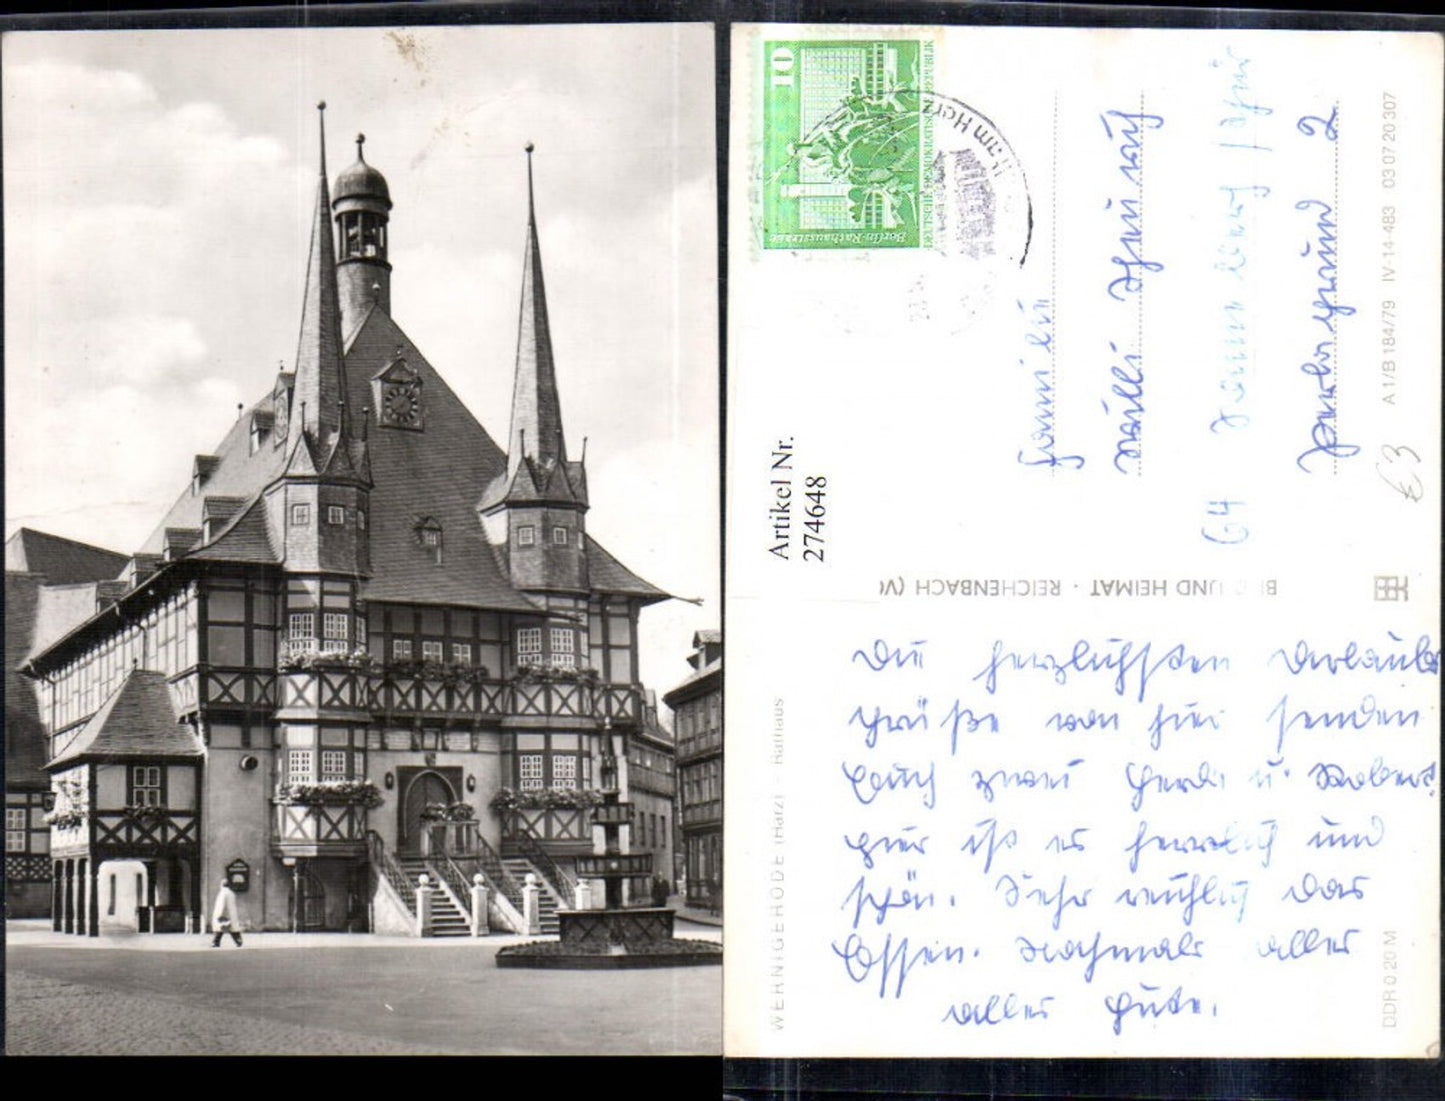 10
Berlin-Rathausstrasse
DEUTSCHE DEMOKRATISCHE REPUBLIK
am Harz
Artikel Nr.
274648
Familie
Willi
64
2
A1/B 184/79 IV-14-483 03 07 20 307
€3
BILD UND HEIMAT · REICHENBACH (V
WERNIGERODE (Harz) - Rathaus
Die herzlichsten Urlaubs
grüße von hier senden
Euch zwei Gerda u. Robert.
Hier ist es herrlich und
schön. Sehr reichlich das
Essen. Nochmals alles
alles Gute.
DDR 0,20 M